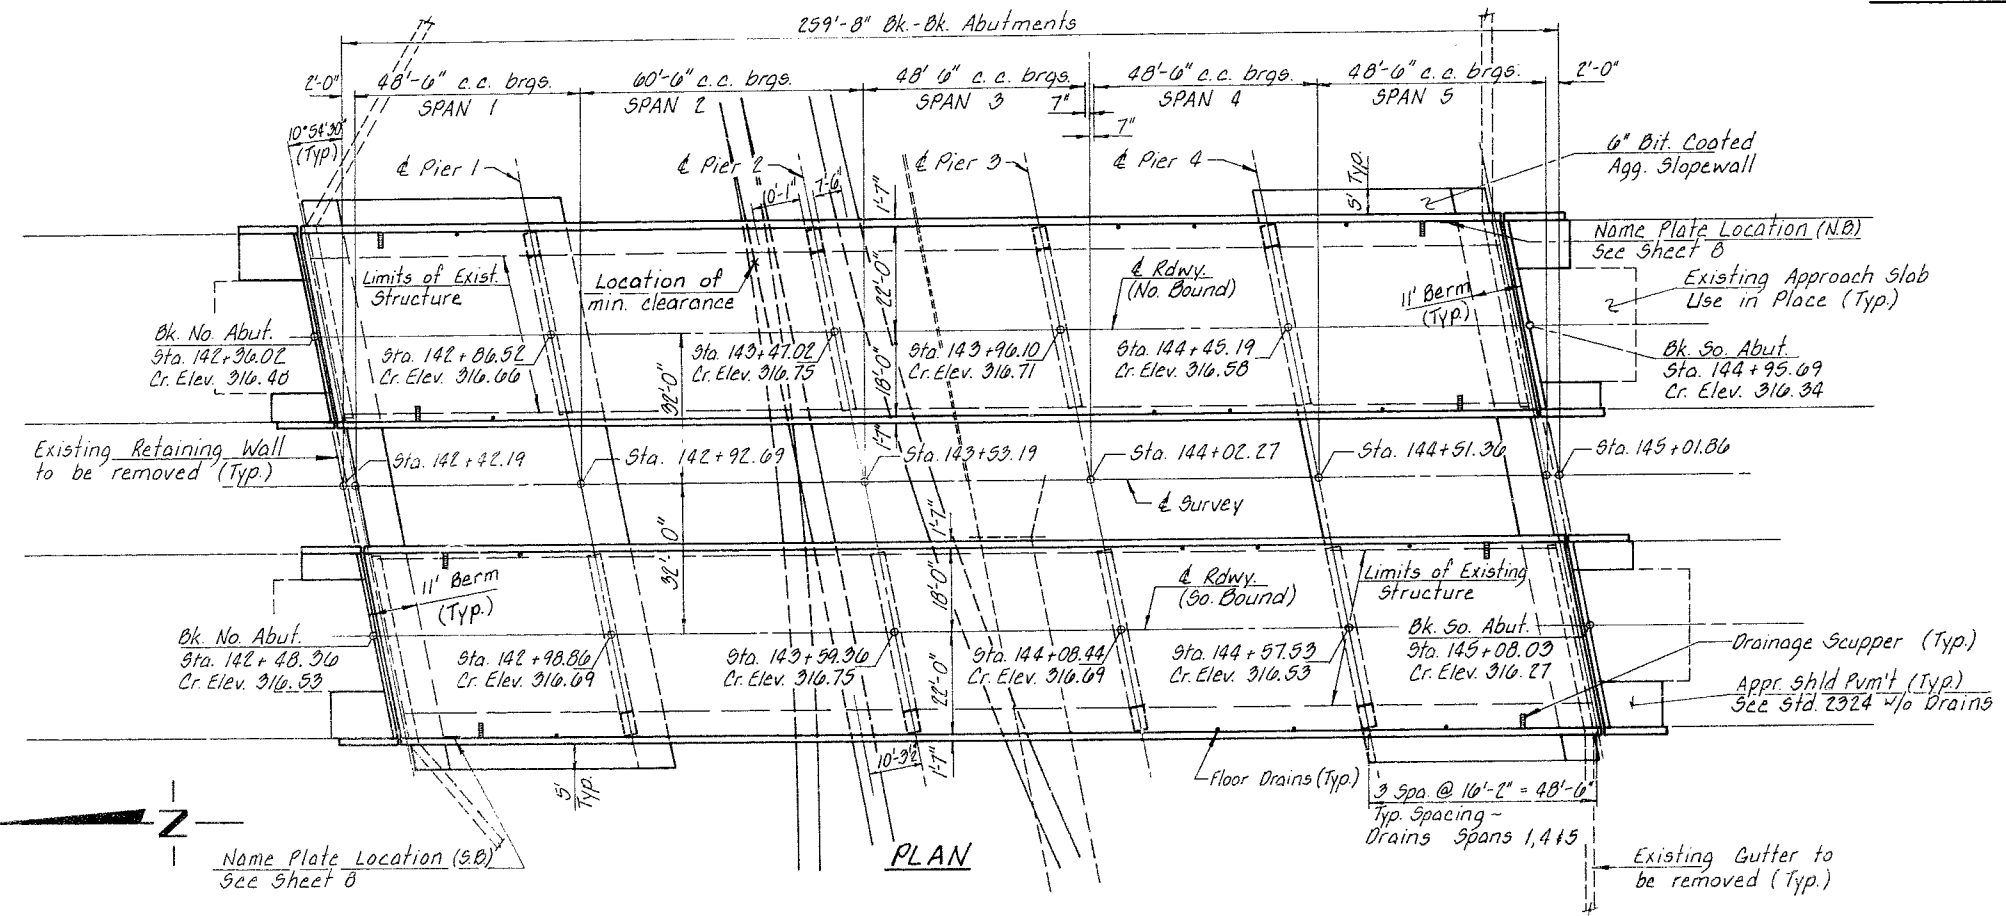 259'-8" Bk.-Bk. Abutments
2'-0"
48'-6" c.c. brgs.
SPAN 1
60'-6" c.c. brgs.
SPAN 2
48' 6" c.c. brgs.
SPAN 3
7"
7"
48'-6" c.c. brgs.
SPAN 4
48'-6" c.c. brgs.
SPAN 5
2'-0"
10°54'30"
(Typ.)
℄ Pier 1
℄ Pier 2
℄ Pier 3
℄ Pier 4
10'-1"
7'-6"
1'-7"
5' Typ.
6" Bit. Coated
Agg. Slopewall
Name Plate Location (N.B)
See Sheet 8
Existing Approach Slab
Use in Place (Typ.)
Limits of Exist.
Structure
Location of
min. clearance
22'-0"
℄ Rdwy.
(No. Bound)
11' Berm
(Typ.)
Bk. No. Abut.
Sta. 142+36.02
Cr. Elev. 316.40
Sta. 142+86.52
Cr. Elev. 316.66
32'-0"
Sta. 143+47.02
Cr. Elev. 316.75
18'-0"
Sta. 143+96.10
Cr. Elev. 316.71
Sta. 144+45.19
Cr. Elev. 316.58
Bk. So. Abut.
Sta. 144+95.69
Cr. Elev. 316.34
Existing Retaining Wall
to be removed (Typ.)
Sta. 142+42.19
Sta. 142+92.69
1'-7"
Sta. 143+53.19
Sta. 144+02.27
Sta. 144+51.36
Sta. 145+01.86
℄ Survey
32'-0"
1'-7"
11' Berm
(Typ.)
18'-0"
℄ Rdwy.
(So. Bound)
Limits of Existing
Structure
Bk. No. Abut.
Sta. 142+48.36
Cr. Elev. 316.53
Sta. 142+98.86
Cr. Elev. 316.69
Sta. 143+59.36
Cr. Elev. 316.75
Sta. 144+08.44
Cr. Elev. 316.69
Sta. 144+57.53
Cr. Elev. 316.53
Bk. So. Abut.
Sta. 145+08.03
Cr. Elev. 316.27
Drainage Scupper (Typ.)
22'-0"
Appr. Shld Pvm't (Typ.)
See Std. 2324 w/o Drains
10'-3½"
1'-7"
5'
Typ.
Floor Drains (Typ.)
3 Spa. @ 16'-2" = 48'-6"
Typ. Spacing ~
Drains Spans 1,4+5
N
Name Plate Location (S.B)
See Sheet 8
PLAN
Existing Gutter to
be removed (Typ.)